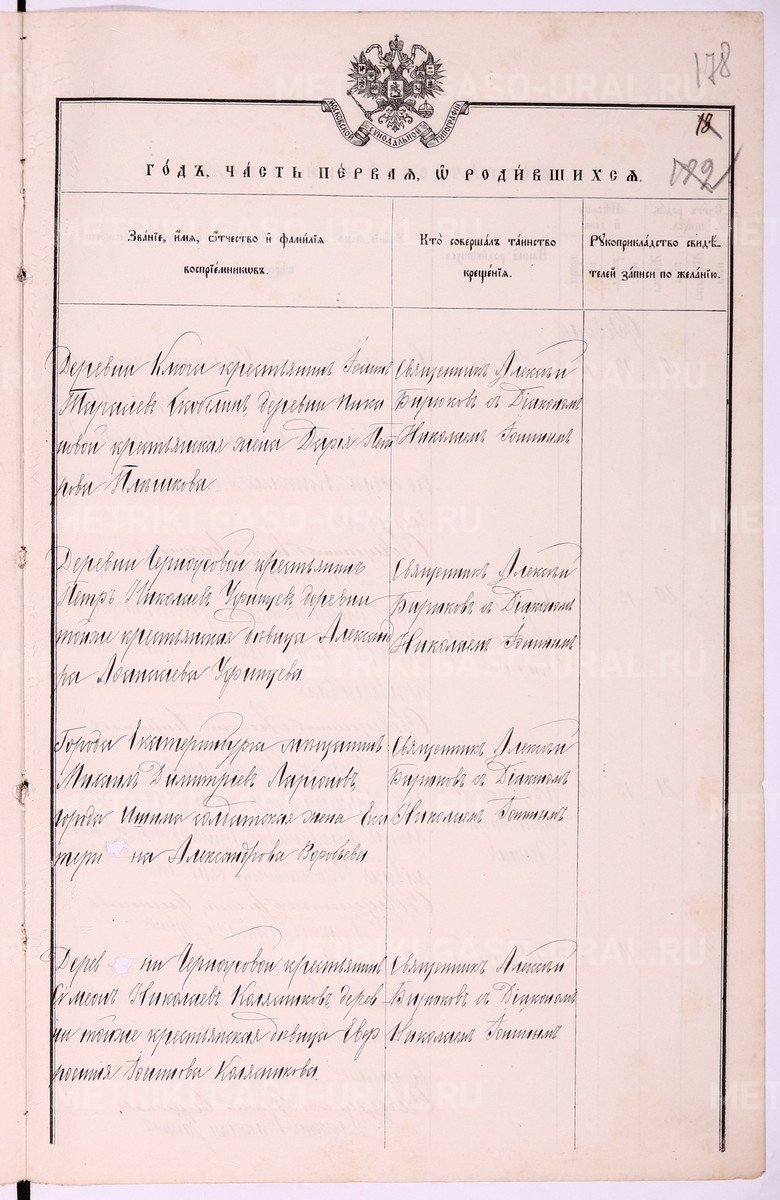 178
18
182
МОСКОВСКОЙ СѴНОДАЛЬНОЙ ТИПОГРАФІИ
ГО́ДЪ, ЧА́СТЬ ПЕ́РВАЯ, Ѡ҆ РОДИ́ВШИХСЯ.
Зва́нїе, и҆́мѧ, ѻ҆́тчество и҆ фами́лїѧ
воспрїе́мникѡвъ.
Кто̀ соверша́лъ та́инство
креще́нїѧ.
Рꙋкоприкла́дство свидѣ́-
телей за́писи по жела́нїю.
Деревни Ключа крестьянинъ Іоаннъ
Тарасіевъ Скобелинъ, деревни Ника
новой крестьянская жена Дарія Пет
рова Плѣшкова.
Священникъ Алексѣй
Бирюковъ съ Діакономъ
Николаемъ Іоттинымъ
Деревни Черноусовой крестьянинъ
Петръ Николаевъ Уфинцевъ, деревни
тойже крестьянская дѣвица Александ
ра Аѳанасіева Уфинцева
Священникъ Алексѣй
Бирюковъ съ Діакономъ
Николаемъ
Города Екатеринбурга мѣщанинъ
Михаилъ Димитріевъ Ларіоновъ,
города Ишима солдатская жена Ека
терина Александрова Воробьева
Священникъ Алексѣй
Бирюковъ съ Діакономъ
Николаемъ
Деревни Черноусовой крестьянинъ
Сѵмеонъ Николаевъ Колясниковъ, дерев
ни тойже крестьянская дѣвица Евф
росинія Колясникова.
Священникъ Алексѣй
Бирюковъ съ Діакономъ
Николаемъ
METRIKI.GASO-URAL.RU